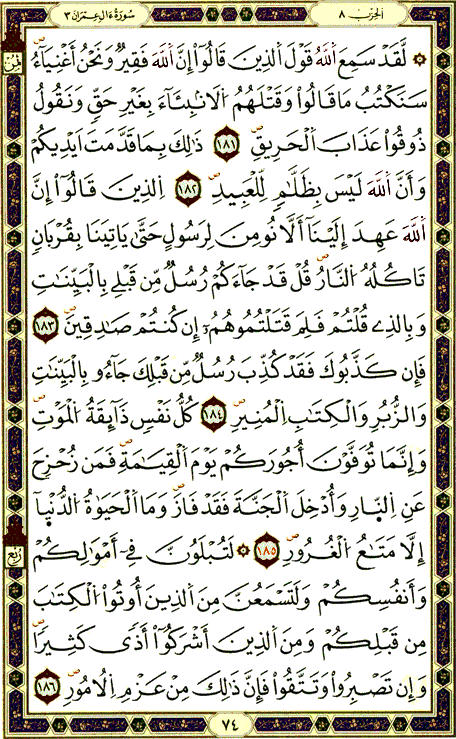 سُورَةُ ءَالِ عِمْرَانَ ٣
الحِزْبُ ٨
ثمن
۞ لَّقَد سَّمِعَ اَ۬للَّهُ قَوْلَ اَ۬لذِينَ قَالُوٓاْ إِنَّ اَ۬للَّهَ فَقِيرٞ وَنَحْنُ أَغْنِيَآءُۖ
سَنَكْتُبُ مَا قَالُواْ وَقَتْلَهُمُ اُ۬لَانۢبِئَآءَ بِغَيْرِ حَقّٖ وَنَقُولُ
ذُوقُواْ عَذَابَ اَ۬لْحَرِيقِۖ ١٨١ ذَٰلِكَ بِمَا قَدَّمَتَ اَيْدِيكُمْ
وَأَنَّ اَ۬للَّهَ لَيْسَ بِظَلَّٰمٖ لِّلْعَبِيدِۖ ١٨٢ اِ۬لذِينَ قَالُوٓاْ إِنَّ
اَ۬للَّهَ عَهِدَ إِلَيْنَآ أَلَّا نُومِنَ لِرَسُولٍ حَتَّىٰ يَاتِيَنَا بِقُرْبَانٖ
تَاكُلُهُ اُ۬لنَّارُۖ قُلْ قَدْ جَآءَكُمْ رُسُلٞ مِّن قَبْلِے بِالْبَيِّنَٰتِ
وَبِالذِے قُلْتُمْ فَلِمَ قَتَلْتُمُوهُمُۥٓ إِن كُنتُمْ صَٰدِقِينَۖ ١٨٣
فَإِن كَذَّبُوكَ فَقَدْ كُذِّبَ رُسُلٞ مِّن قَبْلِكَ جَآءُو بِالْبَيِّنَٰتِ
وَالزُّبُرِ وَالْكِتَٰبِ اِ۬لْمُنِيرِۖ ١٨٤ كُلُّ نَفْسٖ ذَآئِقَةُ اُ۬لْمَوْتِۖ
وَإِنَّمَا تُوَفَّوْنَ أُجُورَكُمْ يَوْمَ اَ۬لْقِيَٰمَةِۖ فَمَن زُحْزِحَ
عَنِ اِ۬لنَّارِ وَأُدْخِلَ اَ۬لْجَنَّةَ فَقَدْ فَازَۖ وَمَا اَ۬لْحَيَوٰةُ اُ۬لدُّنْي۪آ
إِلَّا مَتَٰعُ اُ۬لْغُرُورِۖ ١٨٥ ۞ لَتُبْلَوُنَّ فِےٓ أَمْوَٰلِكُمْ
ربع
وَأَنفُسِكُمْ وَلَتَسْمَعُنَّ مِنَ اَ۬لذِينَ أُوتُواْ اُ۬لْكِتَٰبَ
مِن قَبْلِكُمْ وَمِنَ اَ۬لذِينَ أَشْرَكُوٓاْ أَذٗى كَثِيراٗۖ
وَإِن تَصْبِرُواْ وَتَتَّقُواْ فَإِنَّ ذَٰلِكَ مِنْ عَزْمِ اِ۬لُامُورِۖ ١٨٦
٧٤